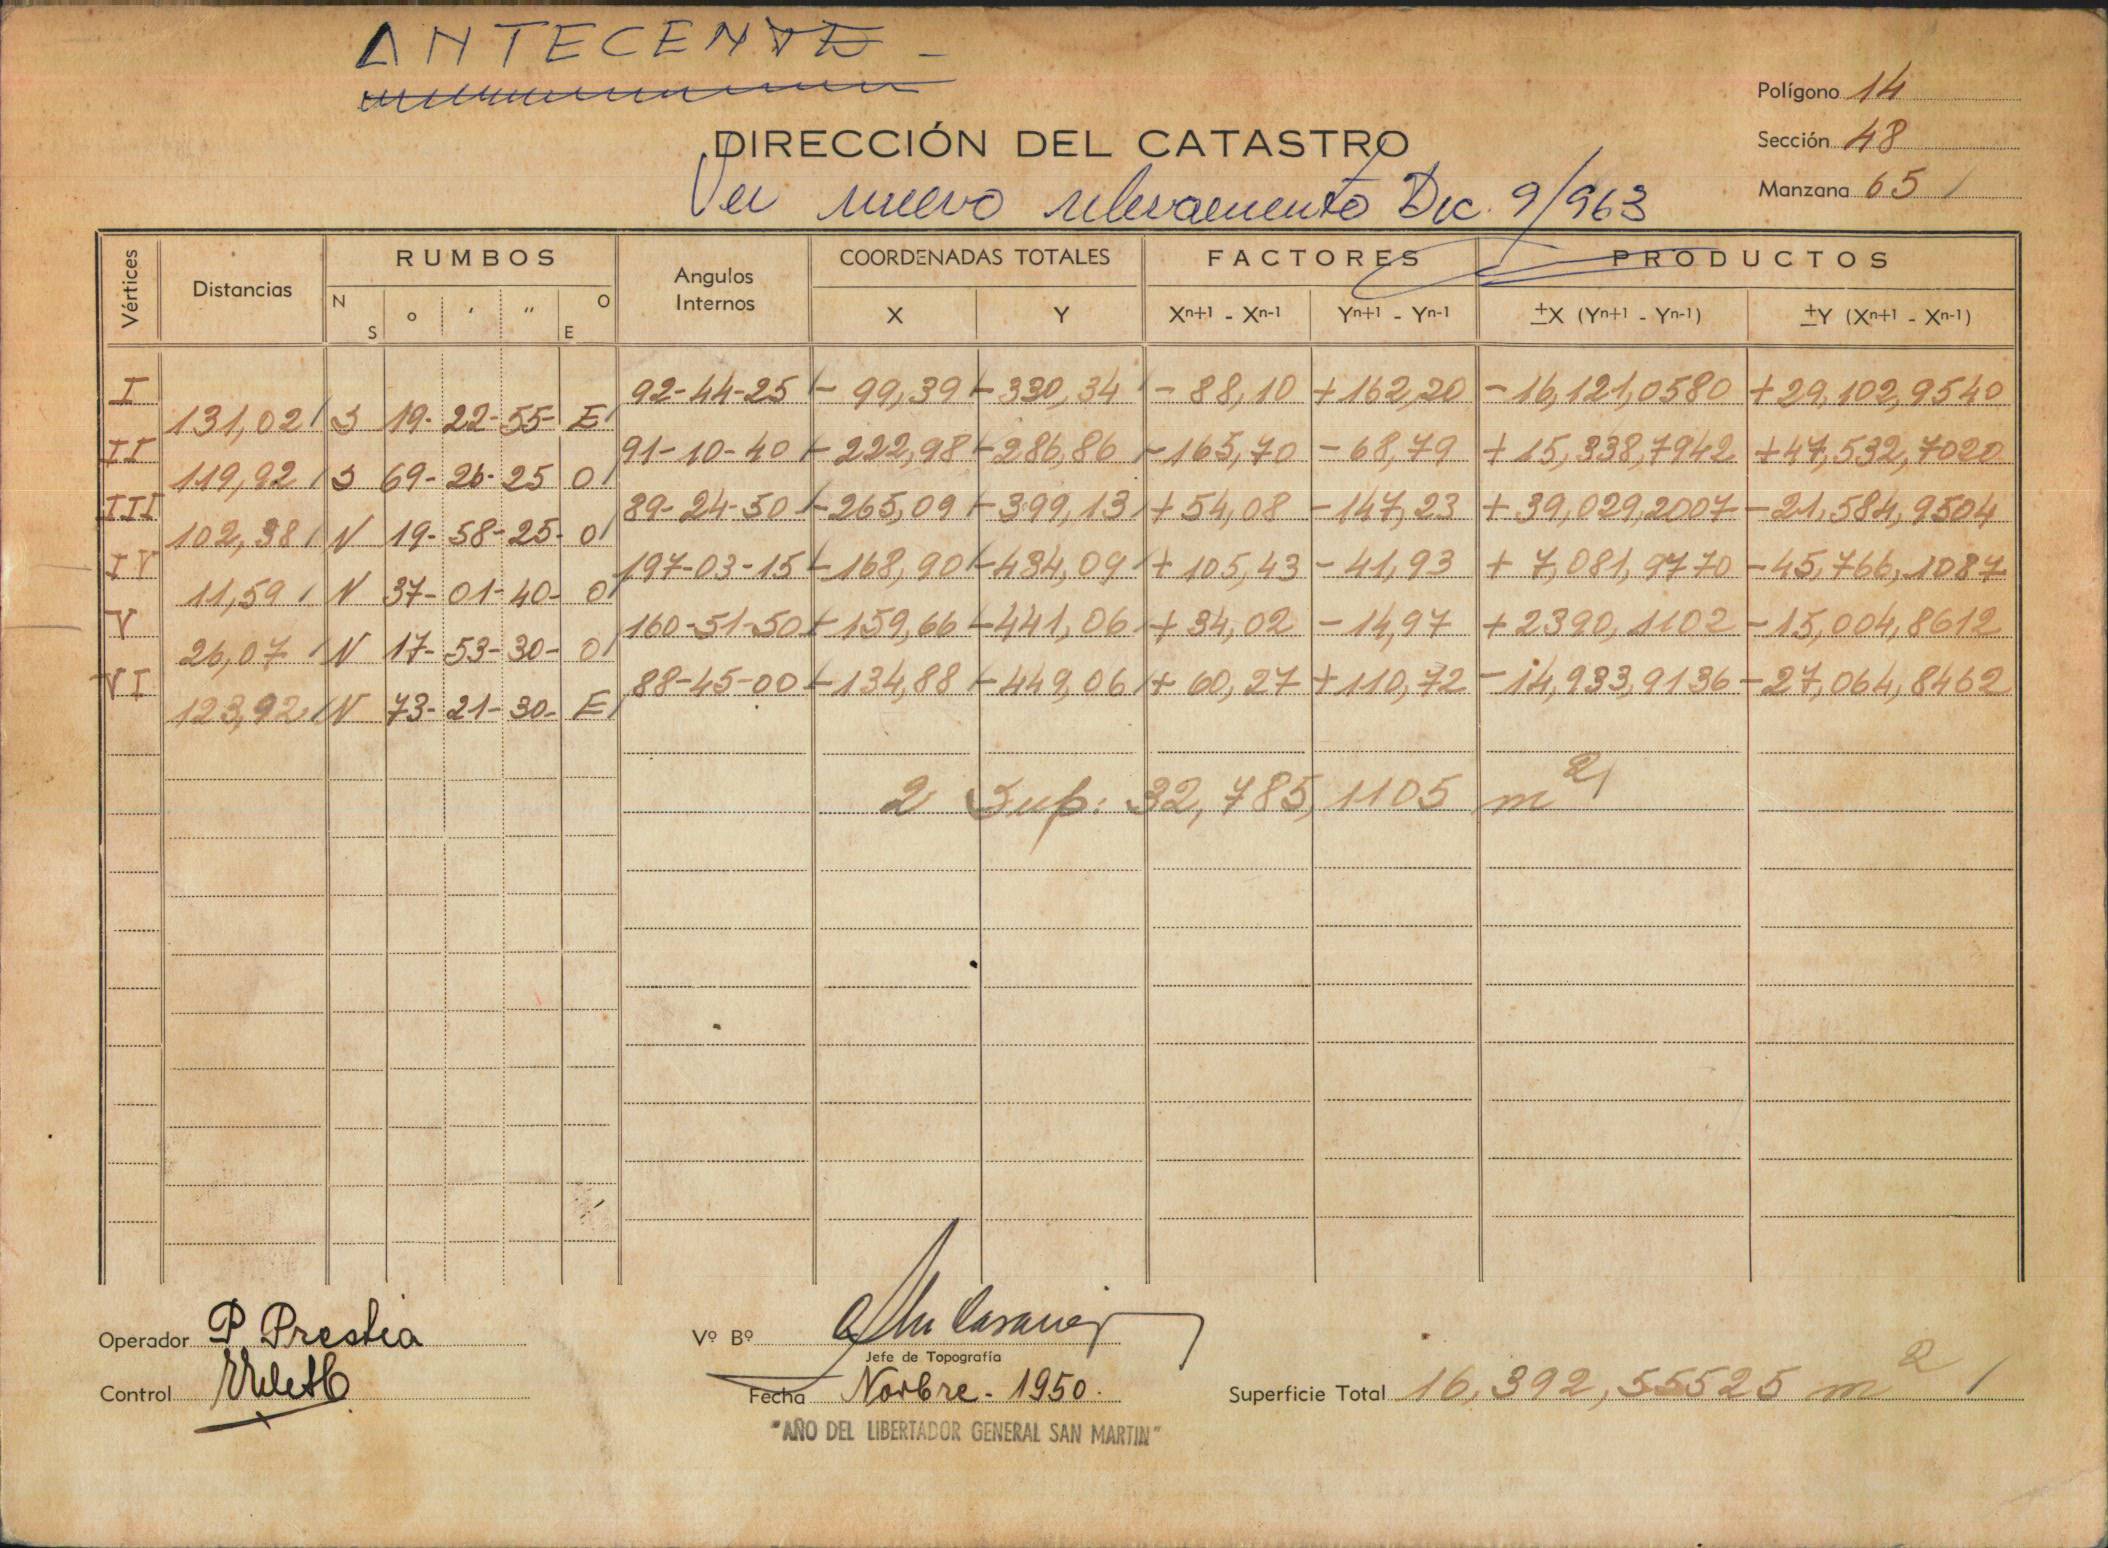 ANTECENTE -
Polígono 14
DIRECCIÓN DEL CATASTRO
Sección 48
Ver nuevo relevamiento Dic. 9/963
Manzana 65 /
Vértices Distancias RUMBOS Angulos Internos COORDENADAS TOTALES FACTORES PRODUCTOS
N S o ' " O E X Y Xn+1 - Xn-1 Yn+1 - Yn-1 ±X (Yn+1 - Yn-1) ±Y (Xn+1 - Xn-1)
I 92-44-25 - 99,39 - 330,34 - 88,10 + 162,20 - 16,121,0580 + 29,102,9540
131,02 S 19- 22- 55- E
II 91-10-40 - 222,98 - 286,86 - 165,70 - 68,79 + 15,338,7942 + 47,532,7020
119,92 S 69- 26- 25 O
III 89-24-50 - 265,09 - 399,13 + 54,08 - 147,23 + 39,029,2007 - 21,584,9504
102,38 N 19- 58- 25- O
IV 197-03-15 - 168,90 - 434,09 + 105,43 - 41,93 + 7,081,9770 - 45,766,1087
11,59 N 37- 01- 40- O
V 160-51-50 - 159,66 - 441,06 + 34,02 - 14,97 + 2390,1102 - 15,004,8612
26,07 N 17- 53- 30- O
VI 88-45-00 - 134,88 - 449,06 + 60,27 + 110,72 - 14,933,9136 - 27,064,8462
123,92 N 73- 21- 30- E
2 Sup: 32,785,1105 m2
Operador P Prestia
Vº Bº
Jefe de Topografía
Control
Fecha Novbre - 1950.
Superficie Total 16,392,55525 m2 /
"AÑO DEL LIBERTADOR GENERAL SAN MARTIN"